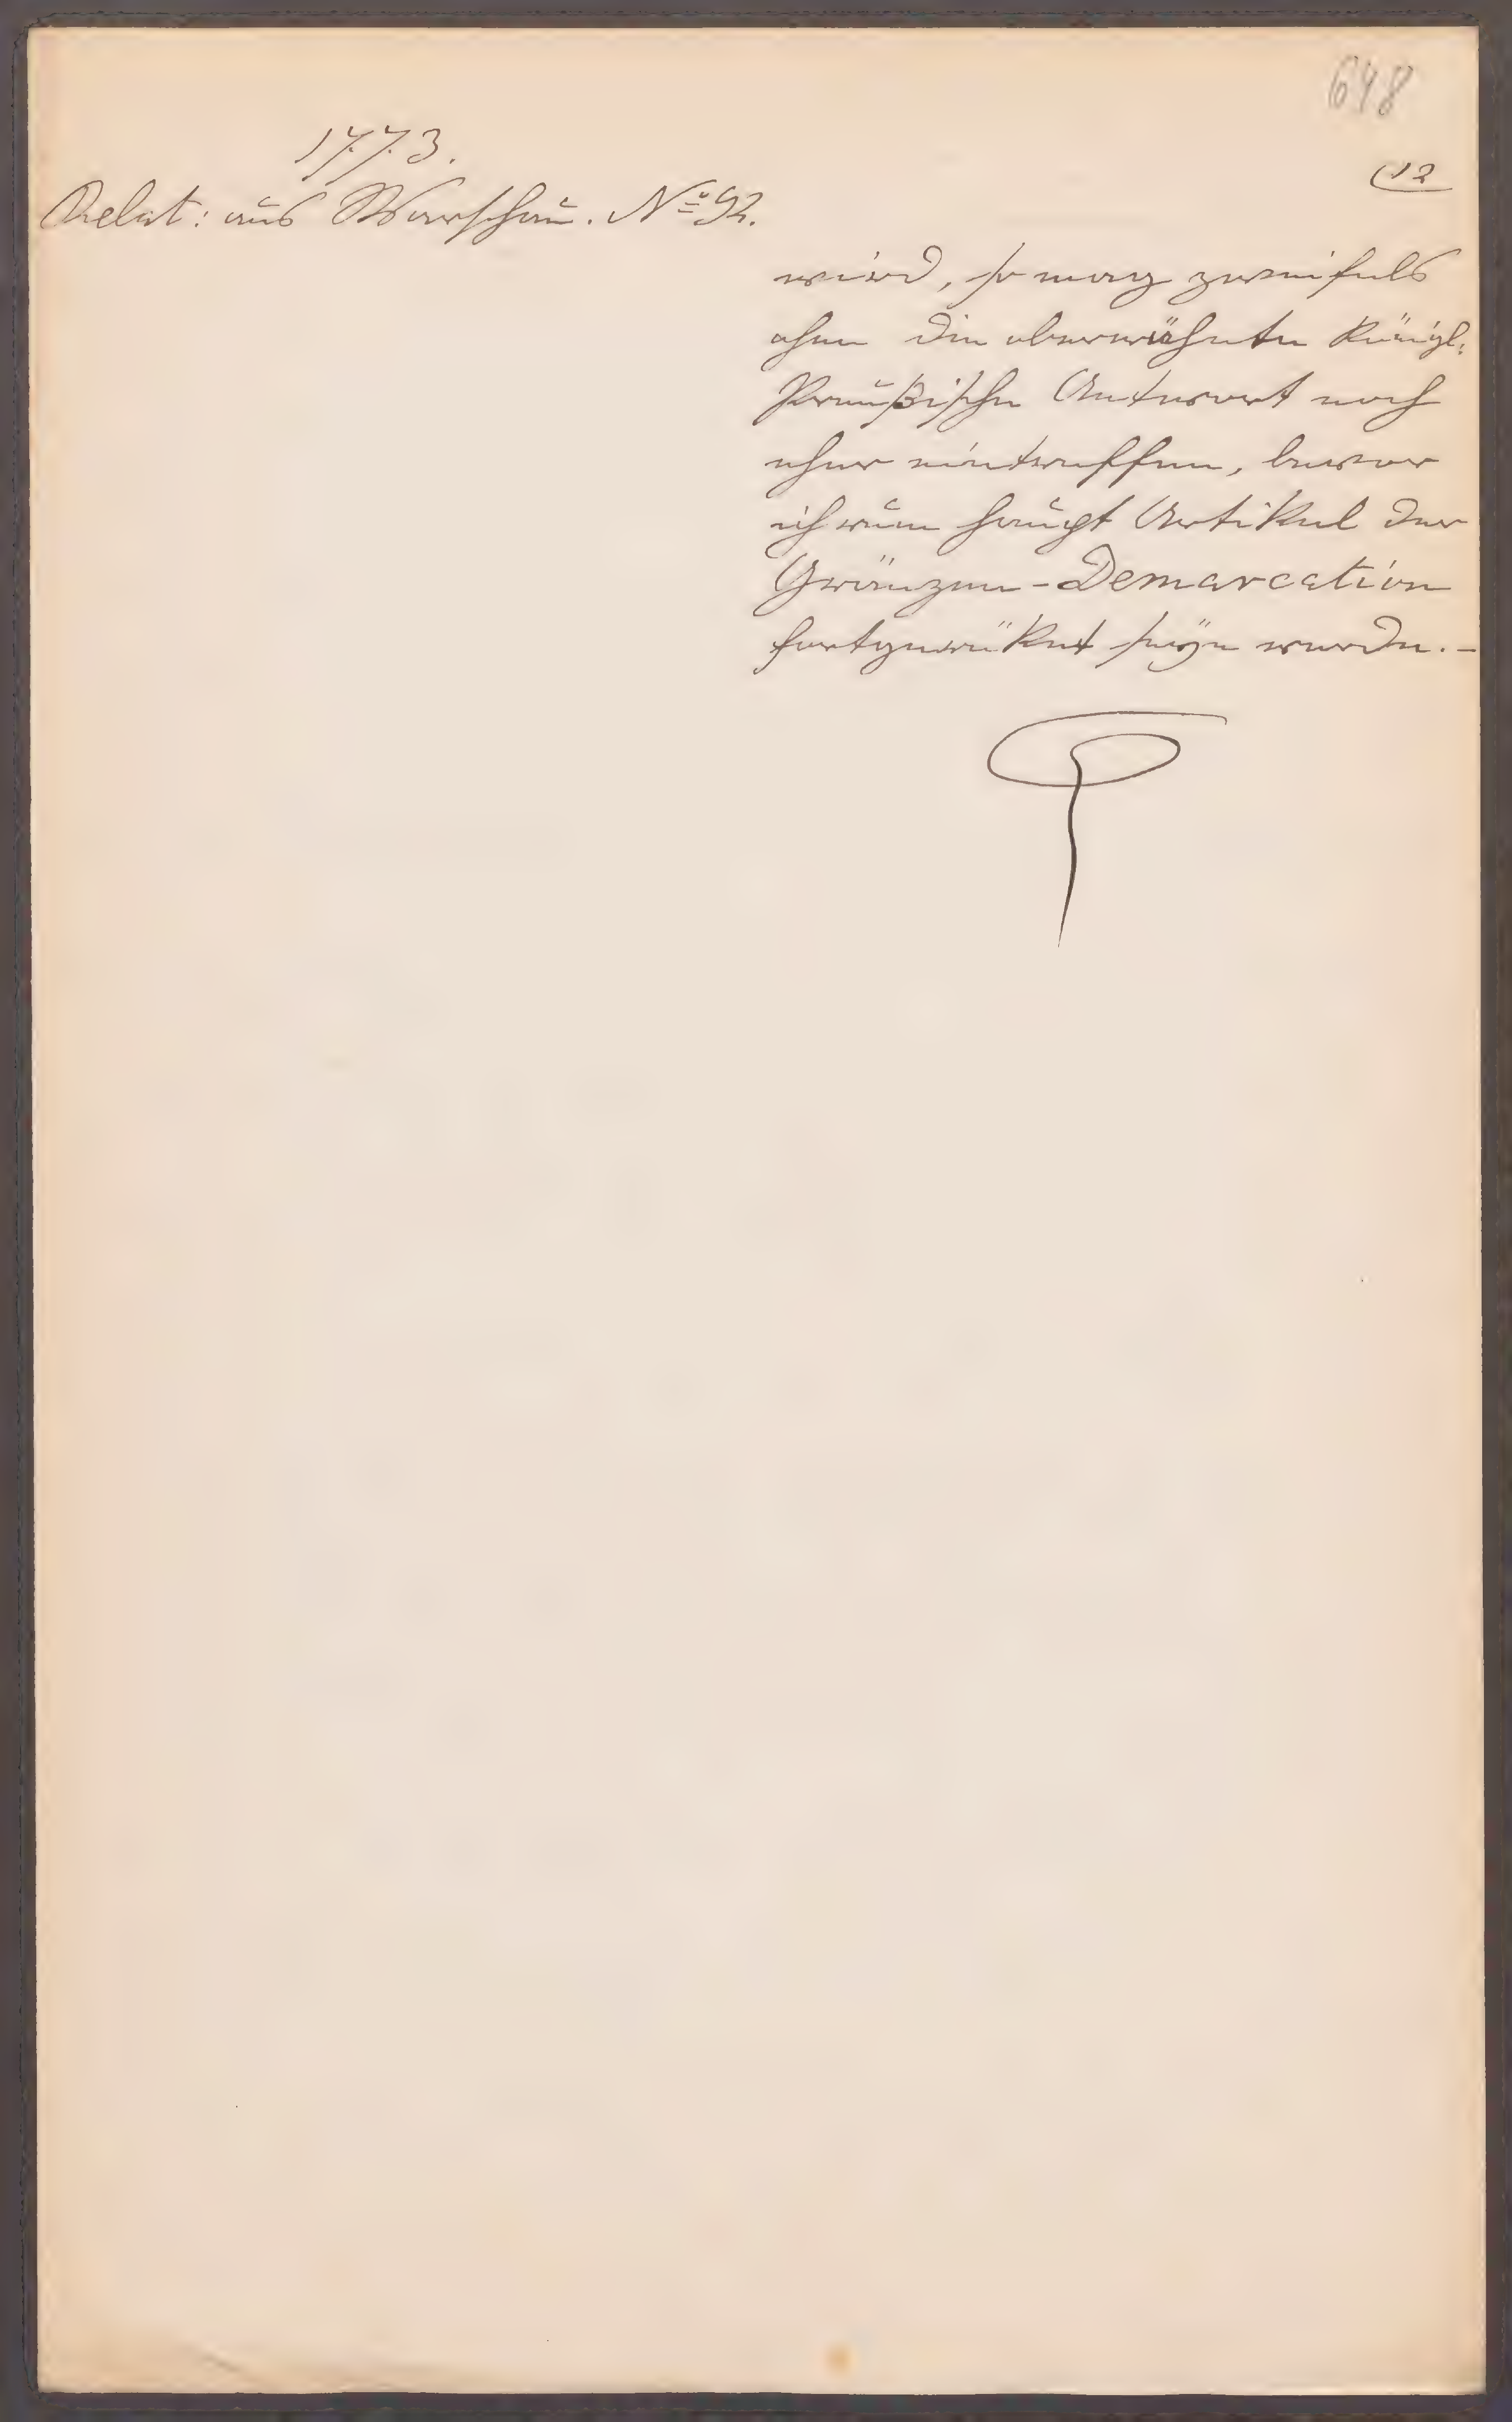 648
1773.
(12
Relat: aus Warschau. No 92.
wird, so mag zweifels
ohne die oberwähnte Königl:
Preußische Antwort noch
eher eintreffen, bevor
ich zum haupt Artikel der
Gränzen-Demarcation
fortgerüket seÿn werde.-